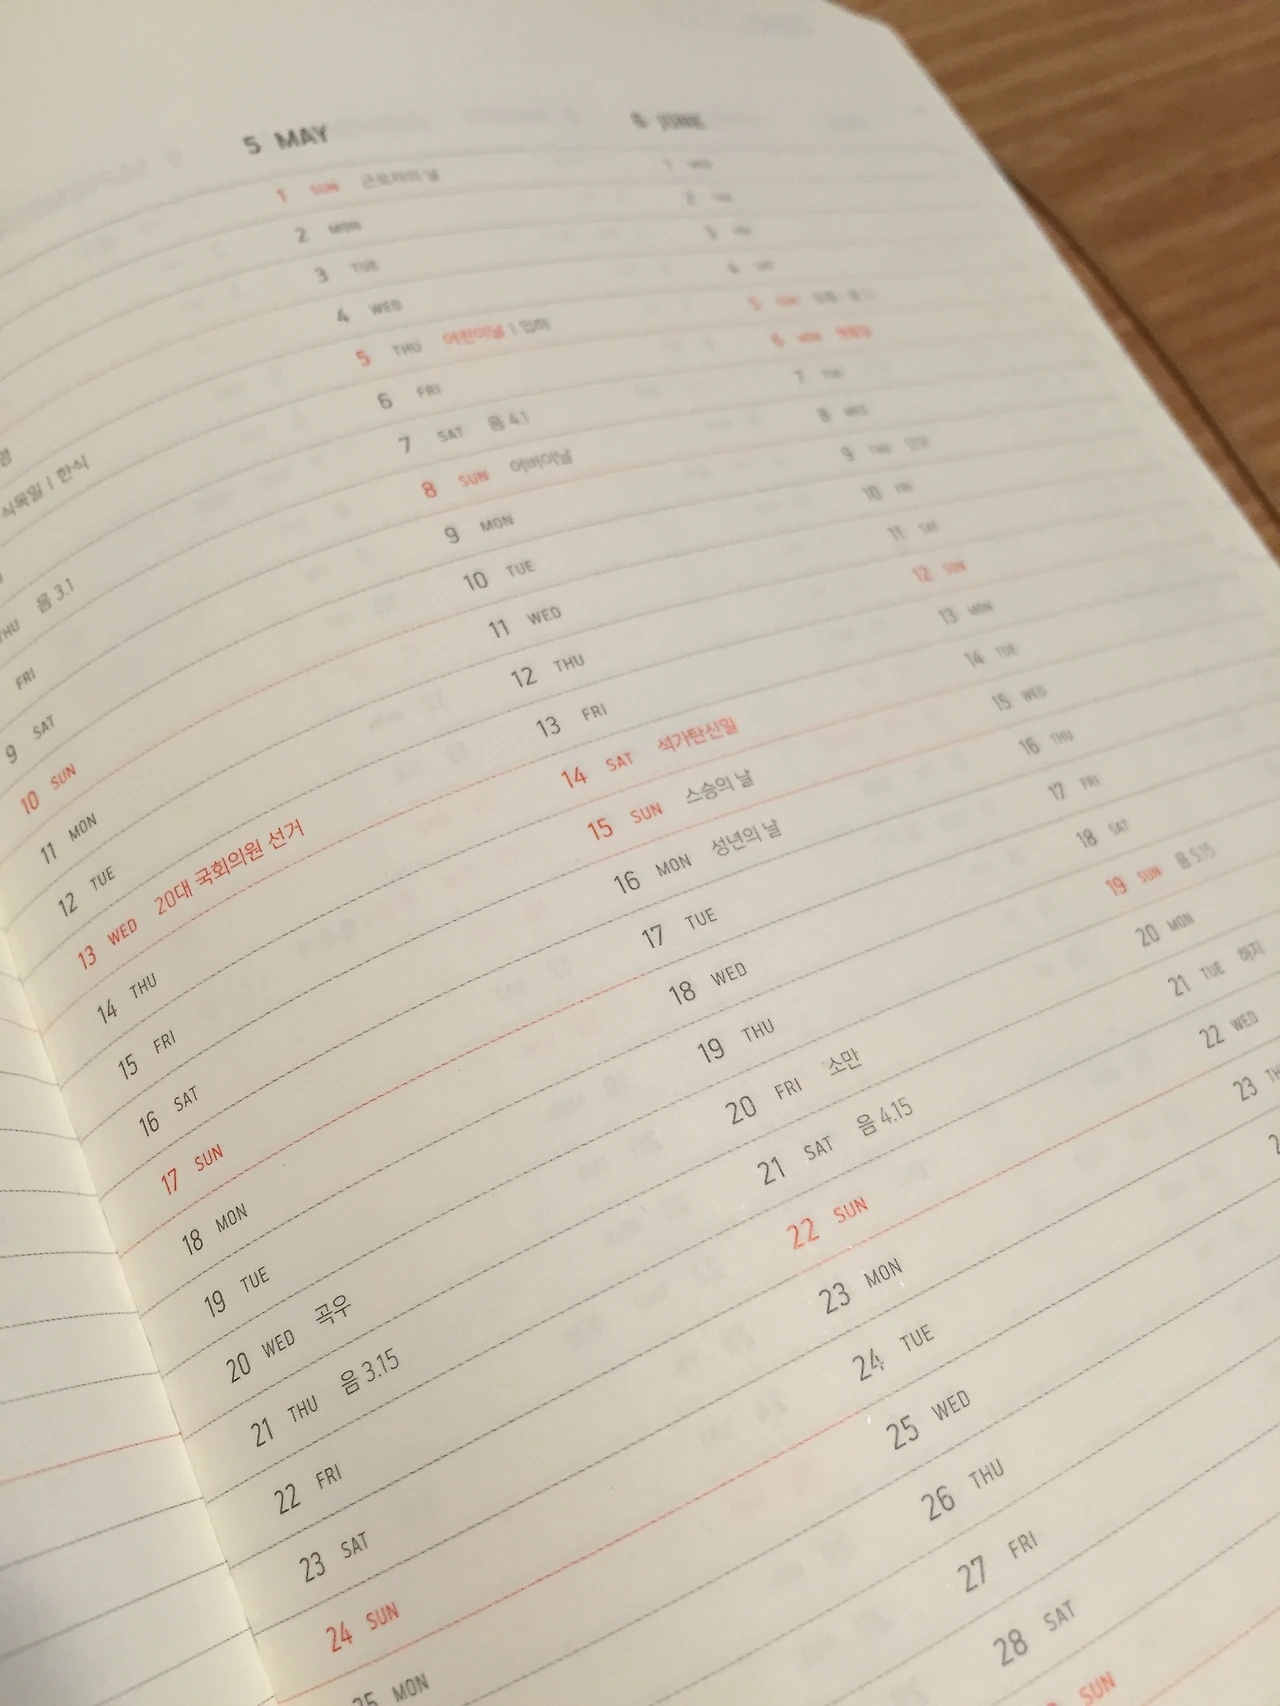 영
식목일 | 한식
THU 음 3.1
FRI
9 SAT
10 SUN
11 MON
12 TUE
13 WED 20대 국회의원 선거
14 THU
15 FRI
16 SAT
17 SUN
18 MON
19 TUE
20 WED 곡우
21 THU 음 3.15
22 FRI
23 SAT
24 SUN
25 MON
5 MAY
1 SUN 근로자의 날
2 MON
3 TUE
4 WED
5 THU 어린이날 | 입하
6 FRI
7 SAT 음 4.1
8 SUN 어버이날
9 MON
10 TUE
11 WED
12 THU
13 FRI
14 SAT 석가탄신일
15 SUN 스승의 날
16 MON 성년의 날
17 TUE
18 WED
19 THU
20 FRI 소만
21 SAT 음 4.15
22 SUN
23 MON
24 TUE
25 WED
26 THU
27 FRI
28 SAT
SUN
6 JUNE
1
2
5 SUN
6 MON 현충일
7 TUE
8 WED
9 THU
10 FRI
11 SAT
12 SUN
13 MON
14 TUE
15 WED
16 THU
17 FRI
18 SAT
19 SUN 음 5.15
20 MON
21 TUE 하지
22 WED
23 TH
2